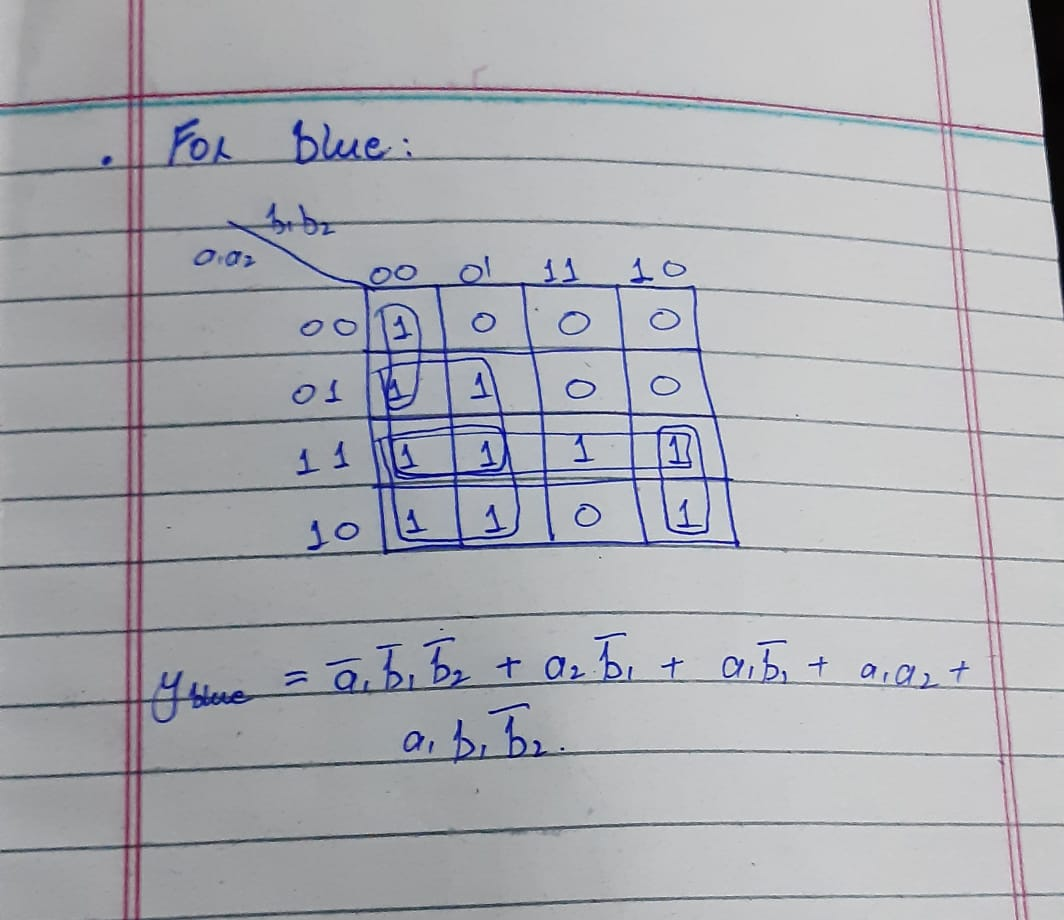 . For blue:
b₁b₂
a₁a₂
00 01 11 10
00 1 0 0 0
01 1 1 0 0
11 1 1 1 1
10 1 1 0 1
y blue = a̅₁ b̅₁ b̅₂ + a₂ b̅₁ + a₁ b̅₁ + a₁a₂ +
a₁ b₁ b̅₂.